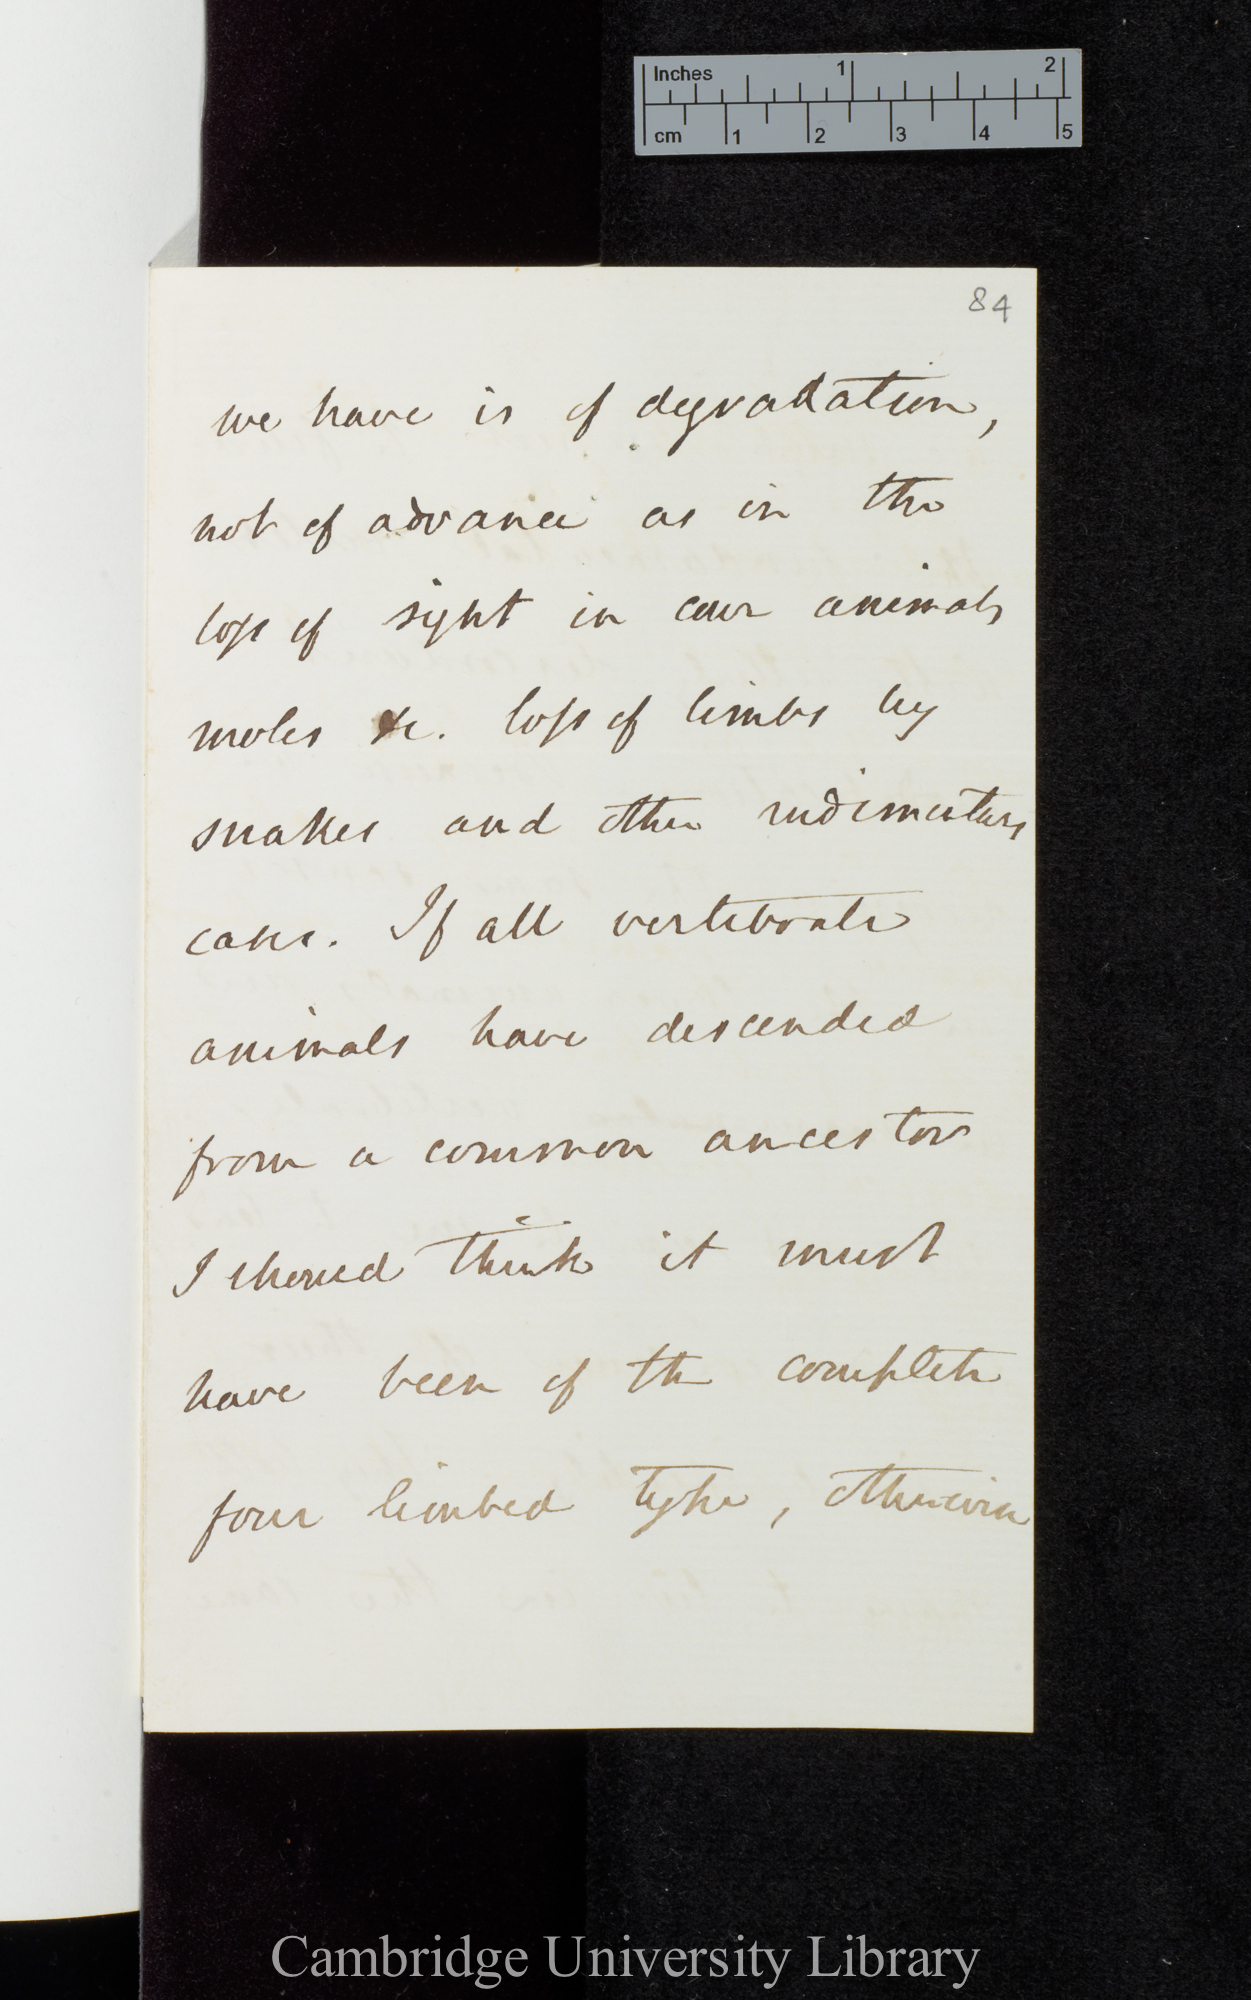 Inches 1 2
cm 1 2 3 4 5
84
we have is of degradation,
not of advance as in the
loss of sight in cave animals
moles &c. loss of limbs by
snakes and other rudimentary
cases. If all vertebrate
animals have descended
from a common ancestor
I should think it must
have been of the complete
four limbed type, otherwise
Cambridge University Library